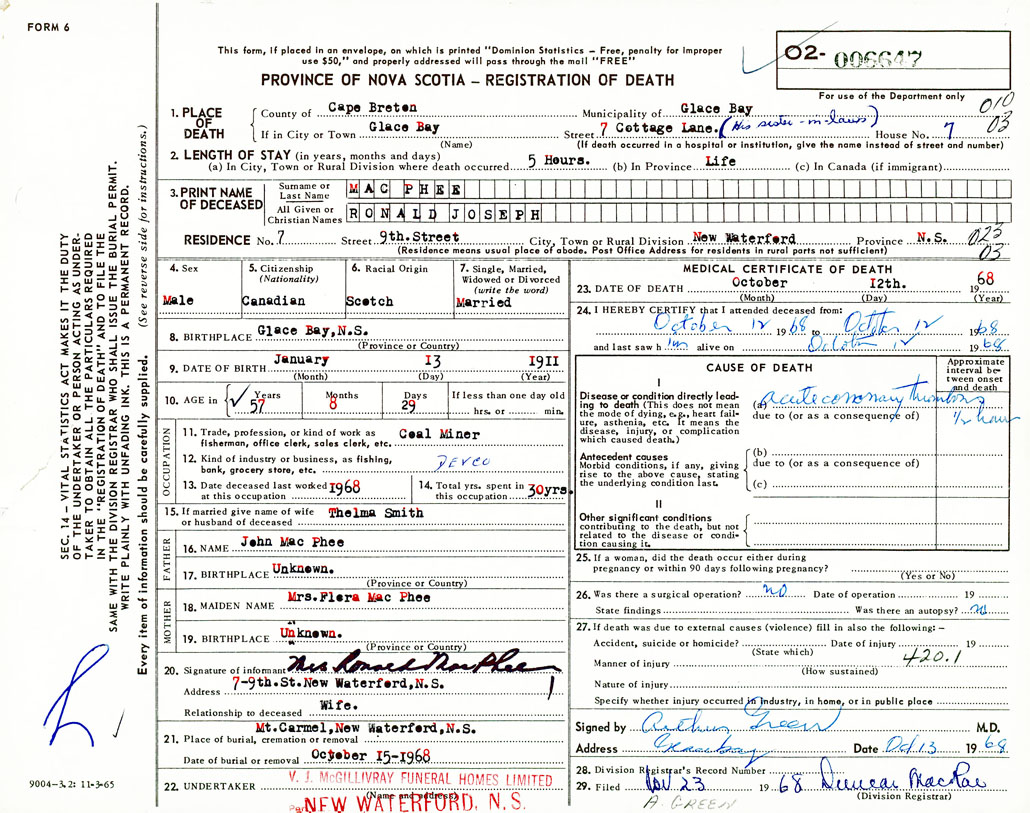 FORM 6
This form, if placed in an envelope, on which is printed "Dominion Statistics – Free, penalty for improper
use $50," and properly addressed will pass through the mail "FREE"
PROVINCE OF NOVA SCOTIA – REGISTRATION OF DEATH
O2- 006647
For use of the Department only
010
03
1. PLACE OF DEATH
County of Cape Breton Municipality of Glace Bay
If in City or Town Glace Bay Street 7 Cottage Lane. (His sister-in-laws) House No. 7
(Name) (If death occurred in a hospital or institution, give the name instead of street and number)
2. LENGTH OF STAY (in years, months and days)
(a) In City, Town or Rural Division where death occurred 5 Hours. (b) In Province Life (c) In Canada (if immigrant)
3. PRINT NAME OF DECEASED
Surname or Last Name MAC PHEE
All Given or Christian Names RONALD JOSEPH
RESIDENCE No. 7 Street 9th.Street City, Town or Rural Division New Waterford Province N.S. 023
(Residence means usual place of abode. Post Office Address for residents in rural parts not sufficient) 03
4. Sex
Male
5. Citizenship
(Nationality)
Canadian
6. Racial Origin
Scotch
7. Single, Married,
Widowed or Divorced
(write the word)
Married
8. BIRTHPLACE Glace Bay,N.S.
(Province or Country)
9. DATE OF BIRTH January 13 1911
(Month) (Day) (Year)
10. AGE in Years 57 Months 8 Days 29 If less than one day old
hrs. or min.
OCCUPATION
11. Trade, profession, or kind of work as
fisherman, office clerk, sales clerk, etc. Coal Miner
12. Kind of industry or business, as fishing,
bank, grocery store, etc. DEVCO
13. Date deceased last worked
at this occupation 1968
14. Total yrs. spent in
this occupation 30yrs.
15. If married give name of wife
or husband of deceased Thelma Smith
FATHER
16. NAME John Mac Phee
17. BIRTHPLACE Unknown.
(Province or Country)
MOTHER
18. MAIDEN NAME Mrs.Flora Mac Phee
19. BIRTHPLACE Unknown.
(Province or Country)
20. Signature of informant Mrs Ronald MacPhee
Address 7-9th.St.New Waterford,N.S.
Relationship to deceased Wife.
21. Place of burial, cremation or removal Mt.Carmel,New Waterford,N.S.
Date of burial or removal October 15-1968
22. UNDERTAKER V. J. McGILLIVRAY FUNERAL HOMES LIMITED
(Name and address)
NEW WATERFORD, N. S.
MEDICAL CERTIFICATE OF DEATH
23. DATE OF DEATH October 12th. 1968
(Month) (Day) (Year)
24. I HEREBY CERTIFY that I attended deceased from:
October 12 1968 to October 12 1968
and last saw him alive on October 12 1968
CAUSE OF DEATH
Approximate
interval be-
tween onset
and death
I
Disease or condition directly lead-
ing to death (This does not mean
the mode of dying, e.g., heart fail-
ure, asthenia, etc. It means the
disease, injury, or complication
which caused death.)
(a) acute coronary thrombosis
due to (or as a consequence of)
1/2 hour
Antecedent causes
Morbid conditions, if any, giving
rise to the above cause, stating
the underlying condition last.
(b)
due to (or as a consequence of)
(c)
II
Other significant conditions
contributing to the death, but not
related to the disease or condi-
tion causing it.
25. If a woman, did the death occur either during
pregnancy or within 90 days following pregnancy?
(Yes or No)
26. Was there a surgical operation? no Date of operation 19
State findings Was there an autopsy? no
27. If death was due to external causes (violence) fill in also the following: –
Accident, suicide or homicide? Date of injury 19
(State which)
Manner of injury 420.1
(How sustained)
Nature of injury
Specify whether injury occurred in Industry, in home, or in public place
Signed by Arthur Green M.D.
Address Glace Bay Date Oct 13 1968
28. Division Registrar's Record Number
29. Filed Nov 23 1968 Duncan MacRae
(Division Registrar)
A. GREEN
SEC. 14 – VITAL STATISTICS ACT MAKES IT THE DUTY
OF THE UNDERTAKER OR PERSON ACTING AS UNDER-
TAKER TO OBTAIN ALL THE PARTICULARS REQUIRED
IN THE "REGISTRATION OF DEATH" AND TO FILE THE
SAME WITH THE DIVISION REGISTRAR WHO SHALL ISSUE THE BURIAL PERMIT.
WRITE PLAINLY WITH UNFADING INK. THIS IS A PERMANENT RECORD.
Every item of information should be carefully supplied. (See reverse side for instructions.)
9004–3.2: 11-3-65